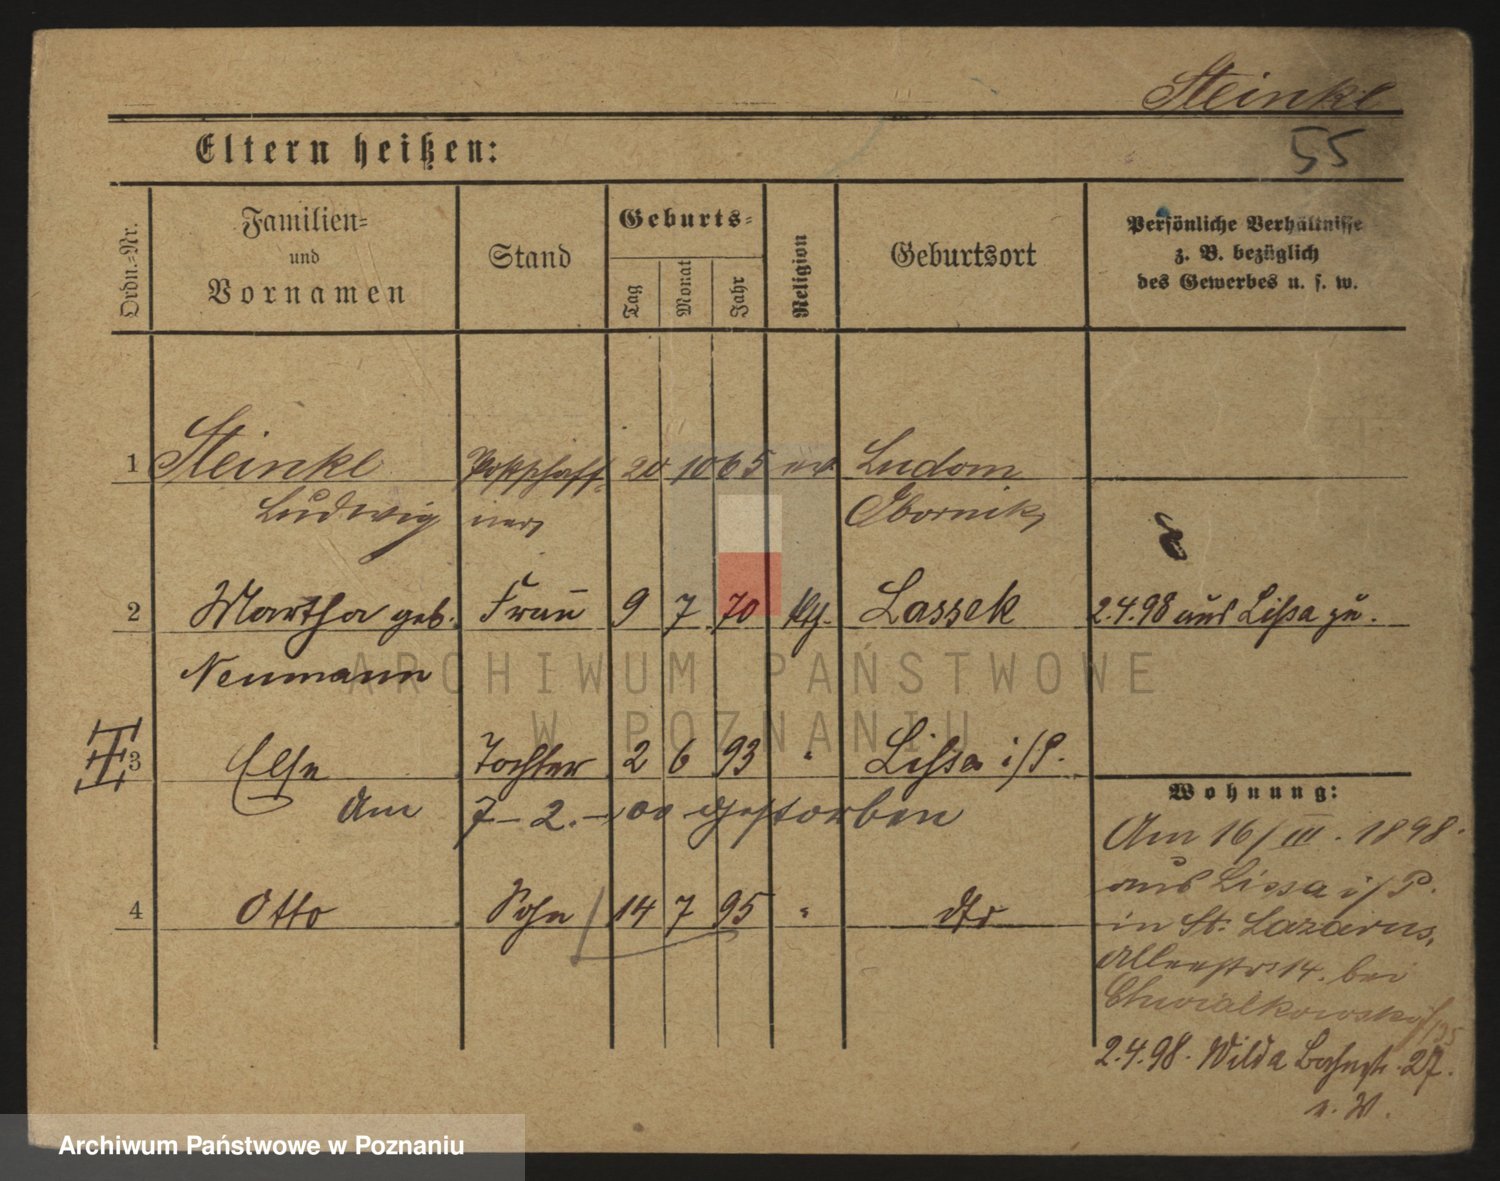 Steinke
55
Eltern heißen:
Ordn.-Nr.
Familien-
und
Vornamen
Stand
Geburts-
Tag
Monat
Jahr
Religion
Geburtsort
Persönliche Verhältnisse
z. B. bezüglich
des Gewerbes u. s. w.
1 Steinke Postschaff- 20 10 65 ev. Ludom
Ludwig ner Obornik
2 Martha geb. Frau 9 7 70 Lassek 2.4.98 aus Lissa zu.
Neumann
3 Else Tochter 2 6 93 " Lissa i/P.
Wohnung:
Am 7-2.-00 gestorben
Am 16/III. 1898.
aus Lissa i/P.
4 Otto Sohn 14 7 95 " dto
in St. Lazarus,
Allenstr. 14. bei
Chwialkowski
2.4.98. Wilda Bachstr. 27.
ARCHIWUM PAŃSTWOWE
W POZNANIU
Archiwum Państwowe w Poznaniu